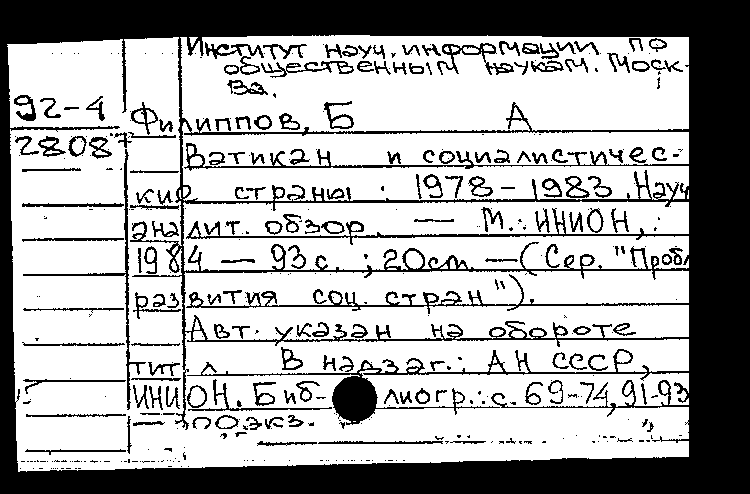 Институт науч. информации по
общественным наукам. Моск-
ва.
92-4
Филиппов, Б А
2808
Ватикан и социалистичес-
кие страны : 1978-1983. Науч
аналит. обзор. — М.: ИНИОН,
1984. — 93 с. ; 20см. — (Сер. "Пробл
развития соц. стран").
Авт. указан на обороте
тит. л. В надзаг.: АН СССР,
ИНИОН. Библиогр.: с. 69-74, 91-93
— 300 экз.